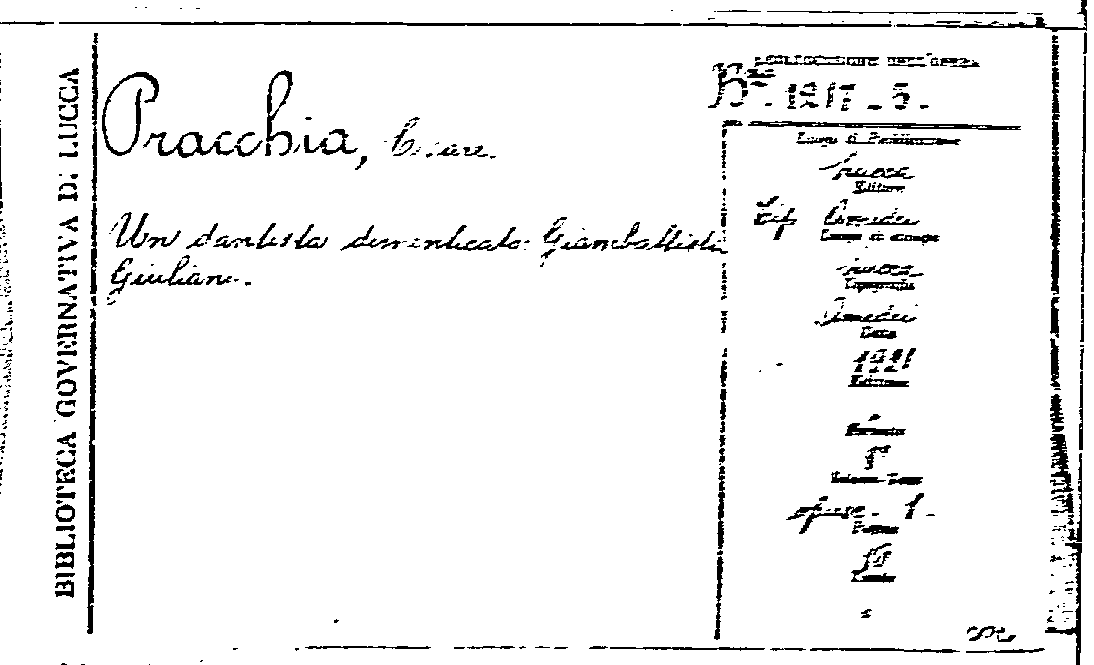 BIBLIOTECA GOVERNATIVA DI LUCCA
Pracchia, Cesare.
Un dantista dimenticato: Giambattista
Giuliani.
COLLOCAZIONE DELL'OPERA
Bta. 1911 - 5.
Luogo di Pubblicazione
Lucca
Editore
Tip. Amedei
Luogo di stampa
Lucca
Tipografia
Amedei
Data
1921
Edizione
Formato
8°
Volumi - Tomi
opusc. 1.
Pagine